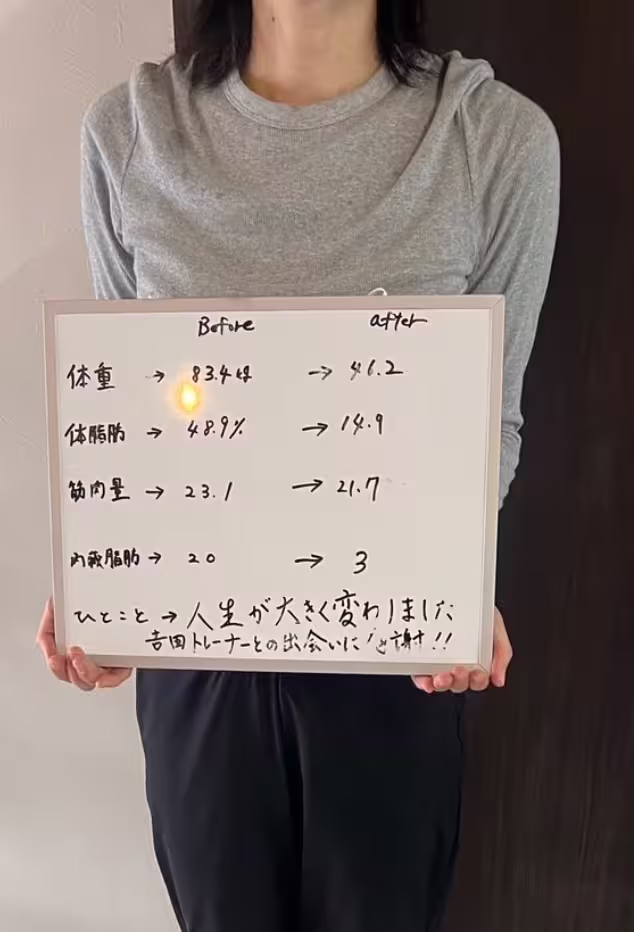 Before after
体重 → 83.4kg → 46.2
体脂肪 → 48.9% → 14.9
筋肉量 → 23.1 → 21.7
内蔵脂肪 → 20 → 3
ひとこと → 人生が大きく変わりました
吉田トレーナーとの出会いに感謝!!